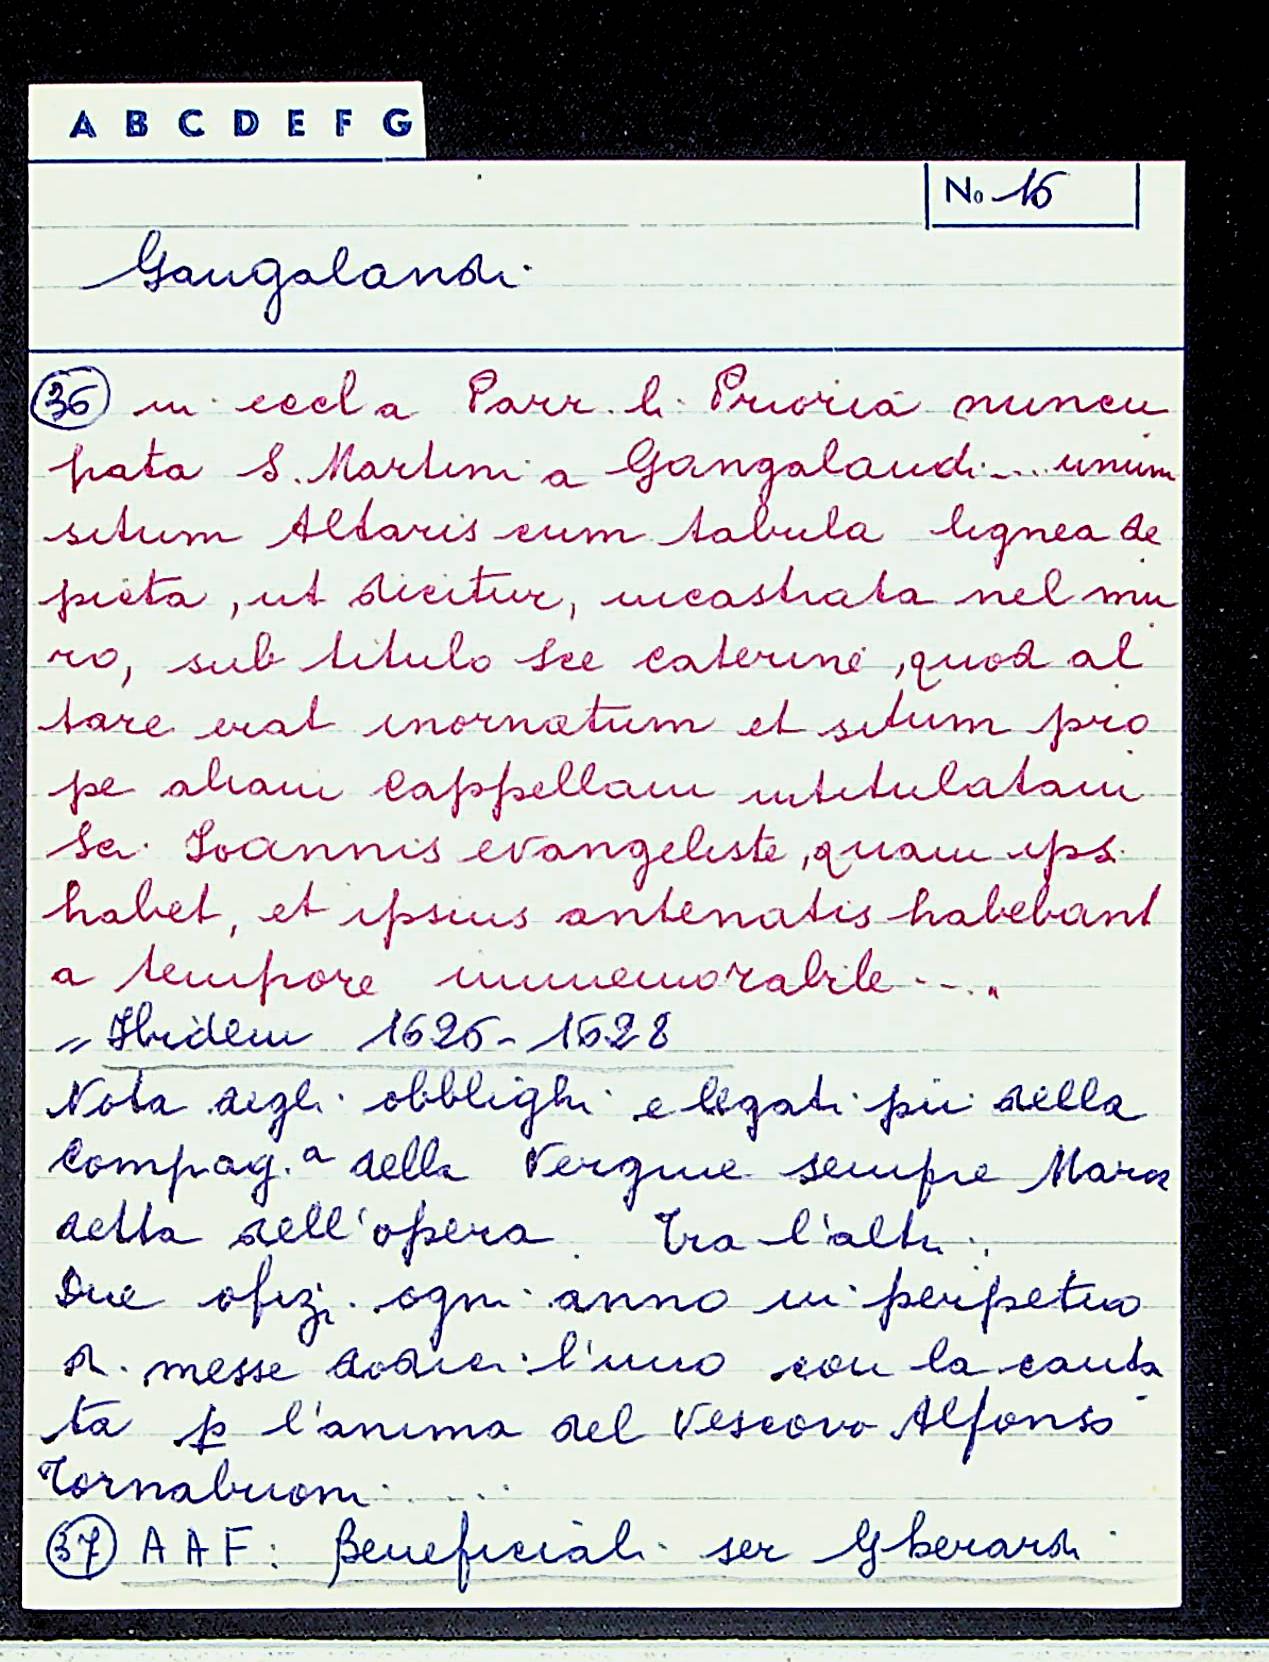 A B C D E F G
No 16
Gangalandi
36 in eccl a Parr. li Prioria nuncu
pata S. Martini a Gangalandi... unum
situm Altaris cum tabula lignea de
picta, ut dicitur, incastrata nel mu
ro, sub titulo Sce Caterine, quod al
tare erat inornatum et situm pro
pe aliam Cappellam intitulatam
Sci Ioannis evangeliste, quam ips.
habet, et ipsius antenatis habebant
a tempore immemorabile....
" Ibidem 1626-1628
Nota degli obblighi e legati pii della
Compag.a della Vergine sempre Mara
detta dell'opera. Tra l'altri:
Due ofizi ogni anno in perpetuo
di messe dodici l'uno con la canta
ta p l'anima del Vescovo Alfonso
Tornabuoni.....
37 AAF: Beneficiali ser Gherardi